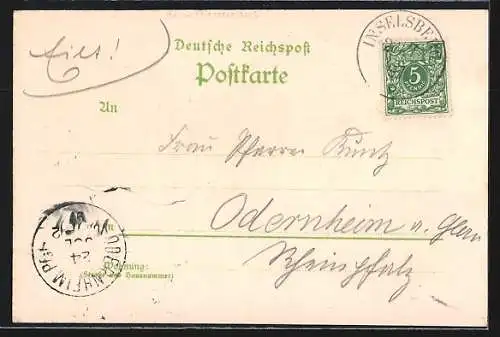 Eilt!
Deutsche Reichspost
Postkarte
INSELSBE
5
REICHSPOST
An
Frau Pfarrer Kuntz
in
Odernheim a. Glan
Rheinpfalz
Wohnung:
(Straße und Hausnummer)
24
JUL